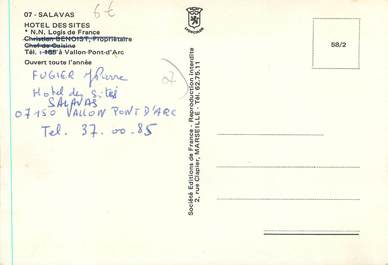 6€
07 - SALAVAS
HOTEL DES SITES
* N.N. Logis de France
Christian BENOIST, Propriétaire
Chef de Cuisine
Tél. : 155 à Vallon-Pont-d'Arc
Ouvert toute l'année
FUGIER J Pierre
Hotel des Sites
SALAVAS
07150 VALLON PONT D'ARC
Tel. 37.00.85
Société Editions de France - Reproduction interdite
2, rue Clapier, MARSEILLE - Tél. 62.75.11
58/2